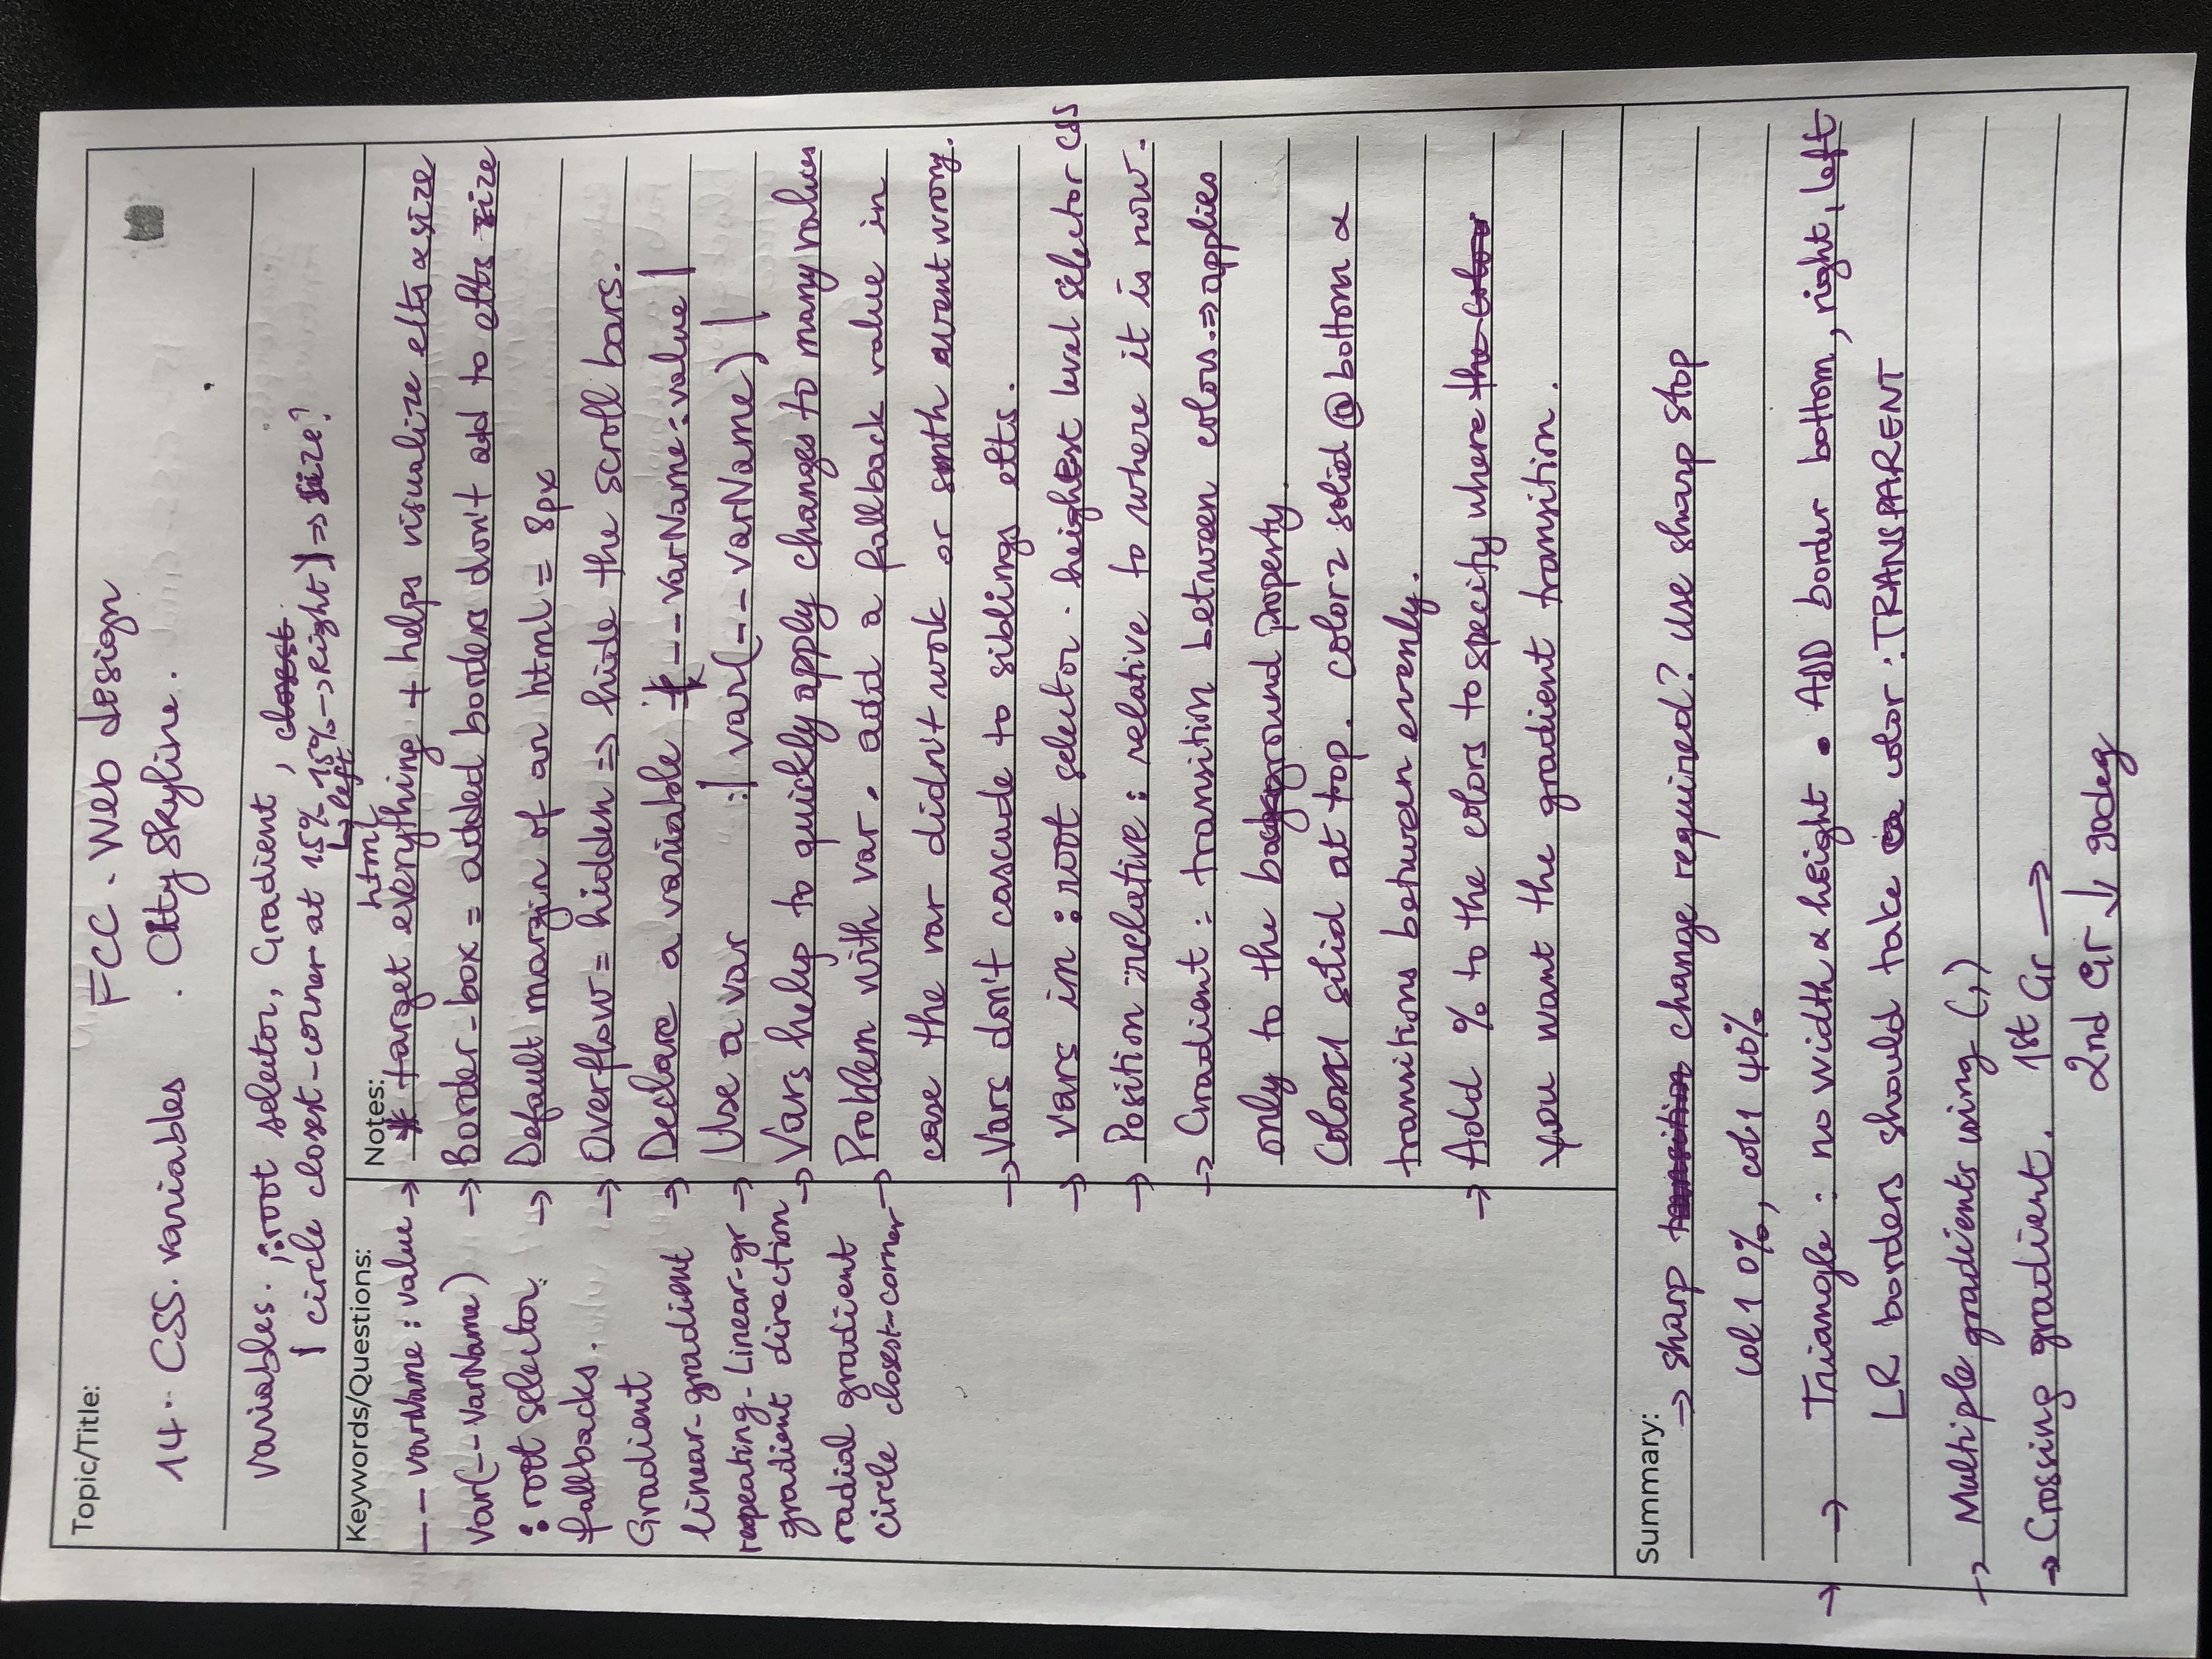 Topic/Title:
FCC . Web design
14.. CSS. variables . City Skyline.
Variables. , :root selector, Gradient , closest
| circle closest-corner at 15% 15% -> Right | => size?
↳ left
Keywords/Questions:
-- varName : value
var(-- VarName)
: root selector
fallbacks.
Gradient
linear-gradient
repeating-Linear-gr
gradient direction
radial gradient
circle closest-corner
Notes:
html
-> * target everything + helps visualize elts & size
-> Border-box = added borders don't add to elts size
-> Default margin of an html = 8px
-> Overflow = hidden => hide the scroll bars.
-> Declare a variable | -- VarName : value |
-> Use a var :| var(-- varName) |
-> Vars help to quickly apply changes to many values
-> Problem with var . add a fallback value in
case the var didn't work or smth went wrong.
-> Vars don't cascade to siblings elts.
-> Vars in : root selector . heighest level selector css
-> Position :relative : relative to where it is now.
-> Gradient : transition between colors. => applies
only to the background property.
Color1 solid at top. color2 solid @ bottom &
transitions between evenly.
-> Add % to the colors to specify where the color
you want the gradient transition.
Summary:
-> sharp transition change required? Use sharp stop
col 1 0%, col 1 40%
-> -> Triangle : no width & height . ADD border bottom, right, left
LR borders should take color : TRANSPARENT
-> Multiple gradients using (,)
-> Crossing gradient. 1st Gr ->
2nd Gr ↓ 90deg